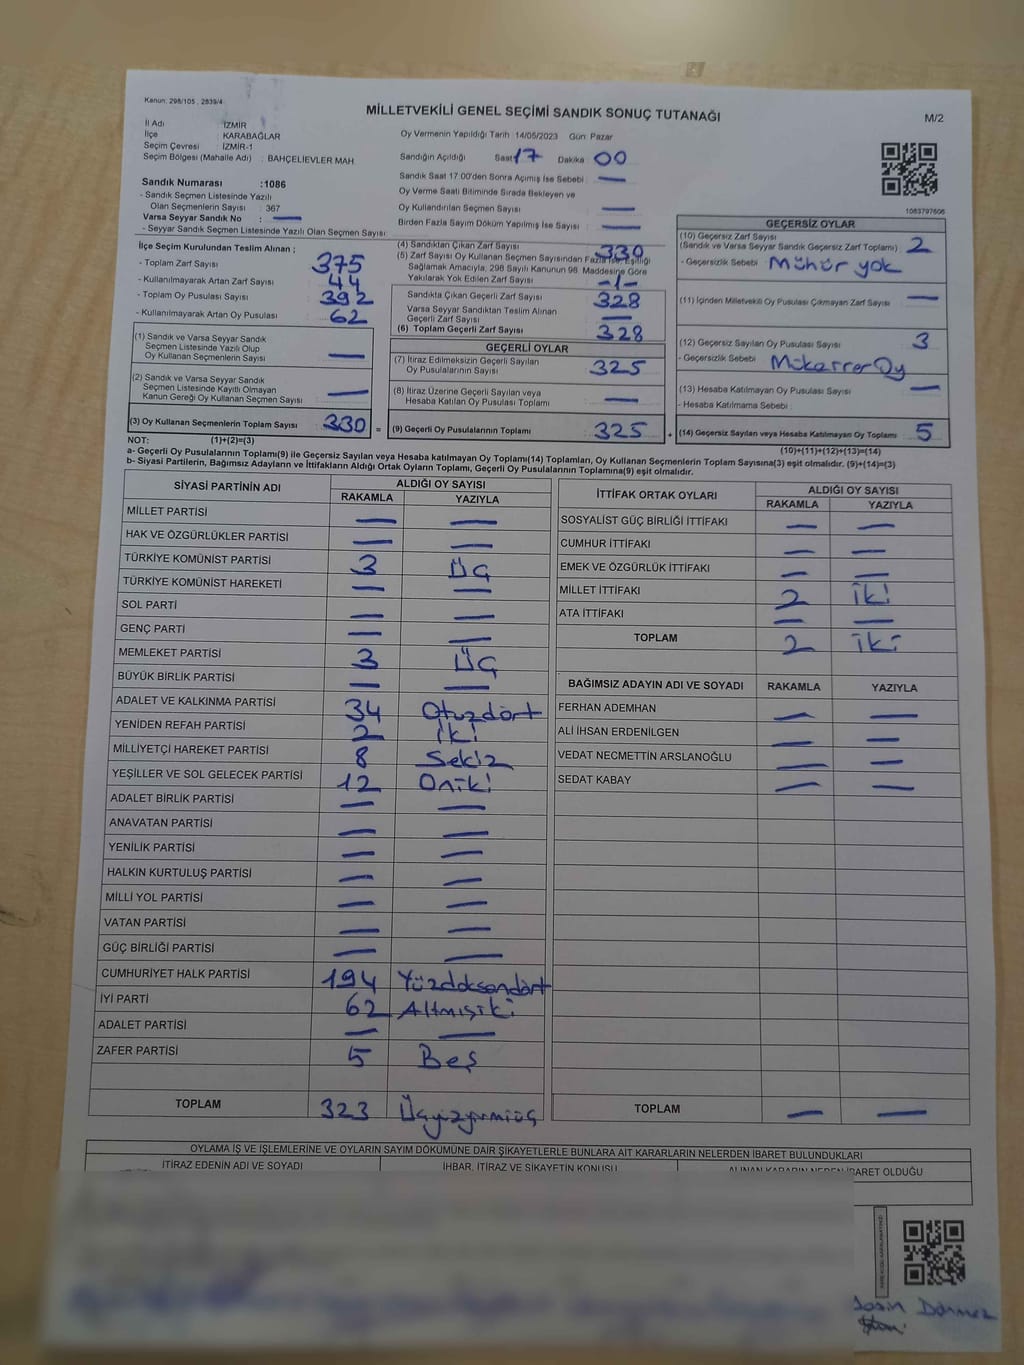 Kanun: 298/105 , 2839/4
MİLLETVEKİLİ GENEL SEÇİMİ SANDIK SONUÇ TUTANAĞI
M/2
İl Adı : İZMİR
İlçe : KARABAĞLAR
Seçim Çevresi : İZMİR-1
Seçim Bölgesi (Mahalle Adı) : BAHÇELİEVLER MAH
Oy Vermenin Yapıldığı Tarih :14/05/2023 Gün Pazar
Sandığın Açıldığı Saat 17 Dakika 00
Sandık Saat 17:00'den Sonra Açımış İse Sebebi : —
Oy Verme Saati Bitiminde Sırada Bekleyen ve
Oy Kullandırılan Seçmen Sayısı : —
Birden Fazla Sayım Döküm Yapılmış İse Sayısı : —
1083797606
Sandık Numarası :1086
- Sandık Seçmen Listesinde Yazılı
Olan Seçmenlerin Sayısı : 367
Varsa Seyyar Sandık No : —
- Seyyar Sandık Seçmen Listesinde Yazılı Olan Seçmen Sayısı:
İlçe Seçim Kurulundan Teslim Alınan ;
- Toplam Zarf Sayısı : 375
- Kullanılmayarak Artan Zarf Sayısı : 44
- Toplam Oy Pusulası Sayısı : 392
- Kullanılmayarak Artan Oy Pusulası : 62
(1) Sandık ve Varsa Seyyar Sandık
Seçmen Listesinde Yazılı Olup
Oy Kullanan Seçmenlerin Sayısı : —
(2) Sandık ve Varsa Seyyar Sandık
Seçmen Listesinde Kayıtlı Olmayan
Kanun Gereği Oy Kullanan Seçmen Sayısı : —
(3) Oy Kullanan Seçmenlerin Toplam Sayısı : 330 =
(4) Sandıktan Çıkan Zarf Sayısı : 330
(5) Zarf Sayısı Oy Kullanan Seçmen Sayısından Fazla İse, Eşitliği
Sağlamak Amacıyla, 298 Sayılı Kanunun 98. Maddesine Göre
Yakılarak Yok Edilen Zarf Sayısı : -1-
Sandıkta Çıkan Geçerli Zarf Sayısı : 328
Varsa Seyyar Sandıktan Teslim Alınan
Geçerli Zarf Sayısı : —
(6) Toplam Geçerli Zarf Sayısı : 328
GEÇERLİ OYLAR
(7) İtiraz Edilmeksizin Geçerli Sayılan
Oy Pusulalarının Sayısı : 325
(8) İtiraz Üzerine Geçerli Sayılan veya
Hesaba Katılan Oy Pusulası Toplamı : —
(9) Geçerli Oy Pusulalarının Toplamı : 325 +
GEÇERSİZ OYLAR
(10) Geçersiz Zarf Sayısı
(Sandık ve Varsa Seyyar Sandık Geçersiz Zarf Toplamı) : 2
- Geçersizlik Sebebi : Mühür yok
(11) İçinden Milletvekili Oy Pusulası Çıkmayan Zarf Sayısı : —
(12) Geçersiz Sayılan Oy Pusulası Sayısı : 3
- Geçersizlik Sebebi : Mükarrer Oy
(13) Hesaba Katılmayan Oy Pusulası Sayısı : —
- Hesaba Katılmama Sebebi :
(14) Geçersiz Sayılan veya Hesaba Katılmayan Oy Toplamı : 5
NOT: (1)+(2)=(3) (10)+(11)+(12)+(13)=(14)
a- Geçerli Oy Pusulalarının Toplamı(9) ile Geçersiz Sayılan veya Hesaba katılmayan Oy Toplamı(14) Toplamları, Oy Kullanan Seçmenlerin Toplam Sayısına(3) eşit olmalıdır. (9)+(14)=(3)
b- Siyasi Partilerin, Bağımsız Adayların ve İttifakların Aldığı Ortak Oyların Toplamı, Geçerli Oy Pusulalarının Toplamına(9) eşit olmalıdır.
SİYASİ PARTİNİN ADI ALDIĞI OY SAYISI
RAKAMLA YAZIYLA
MİLLET PARTİSİ — —
HAK VE ÖZGÜRLÜKLER PARTİSİ — —
TÜRKİYE KOMÜNİST PARTİSİ 3 ÜÇ
TÜRKİYE KOMÜNİST HAREKETİ — —
SOL PARTİ — —
GENÇ PARTİ — —
MEMLEKET PARTİSİ 3 ÜÇ
BÜYÜK BİRLİK PARTİSİ — —
ADALET VE KALKINMA PARTİSİ 34 Otuzdört
YENİDEN REFAH PARTİSİ 2 İki
MİLLİYETÇİ HAREKET PARTİSİ 8 Sekiz
YEŞİLLER VE SOL GELECEK PARTİSİ 12 Oniki
ADALET BİRLİK PARTİSİ — —
ANAVATAN PARTİSİ — —
YENİLİK PARTİSİ — —
HALKIN KURTULUŞ PARTİSİ — —
MİLLİ YOL PARTİSİ — —
VATAN PARTİSİ — —
GÜÇ BİRLİĞİ PARTİSİ — —
CUMHURİYET HALK PARTİSİ 194 Yüzdoksandört
İYİ PARTİ 62 Altmışiki
ADALET PARTİSİ — —
ZAFER PARTİSİ 5 Beş
TOPLAM 323 Üçyüzyirmiüç
İTTİFAK ORTAK OYLARI ALDIĞI OY SAYISI
RAKAMLA YAZIYLA
SOSYALİST GÜÇ BİRLİĞİ İTTİFAKI — —
CUMHUR İTTİFAKI — —
EMEK VE ÖZGÜRLÜK İTTİFAKI — —
MİLLET İTTİFAKI 2 İki
ATA İTTİFAKI — —
TOPLAM 2 İki
BAĞIMSIZ ADAYIN ADI VE SOYADI RAKAMLA YAZIYLA
FERHAN ADEMHAN — —
ALİ İHSAN ERDENİLGEN — —
VEDAT NECMETTİN ARSLANOĞLU — —
SEDAT KABAY — —
TOPLAM — —
OYLAMA İŞ VE İŞLEMLERİNE VE OYLARIN SAYIM DÖKÜMÜNE DAİR ŞİKAYETLERLE BUNLARA AİT KARARLARIN NELERDEN İBARET BULUNDUKLARI
İTİRAZ EDENİN ADI VE SOYADI İHBAR, İTİRAZ VE ŞİKAYETİN KONUSU ALINAN KARARIN NEDEN İBARET OLDUĞU